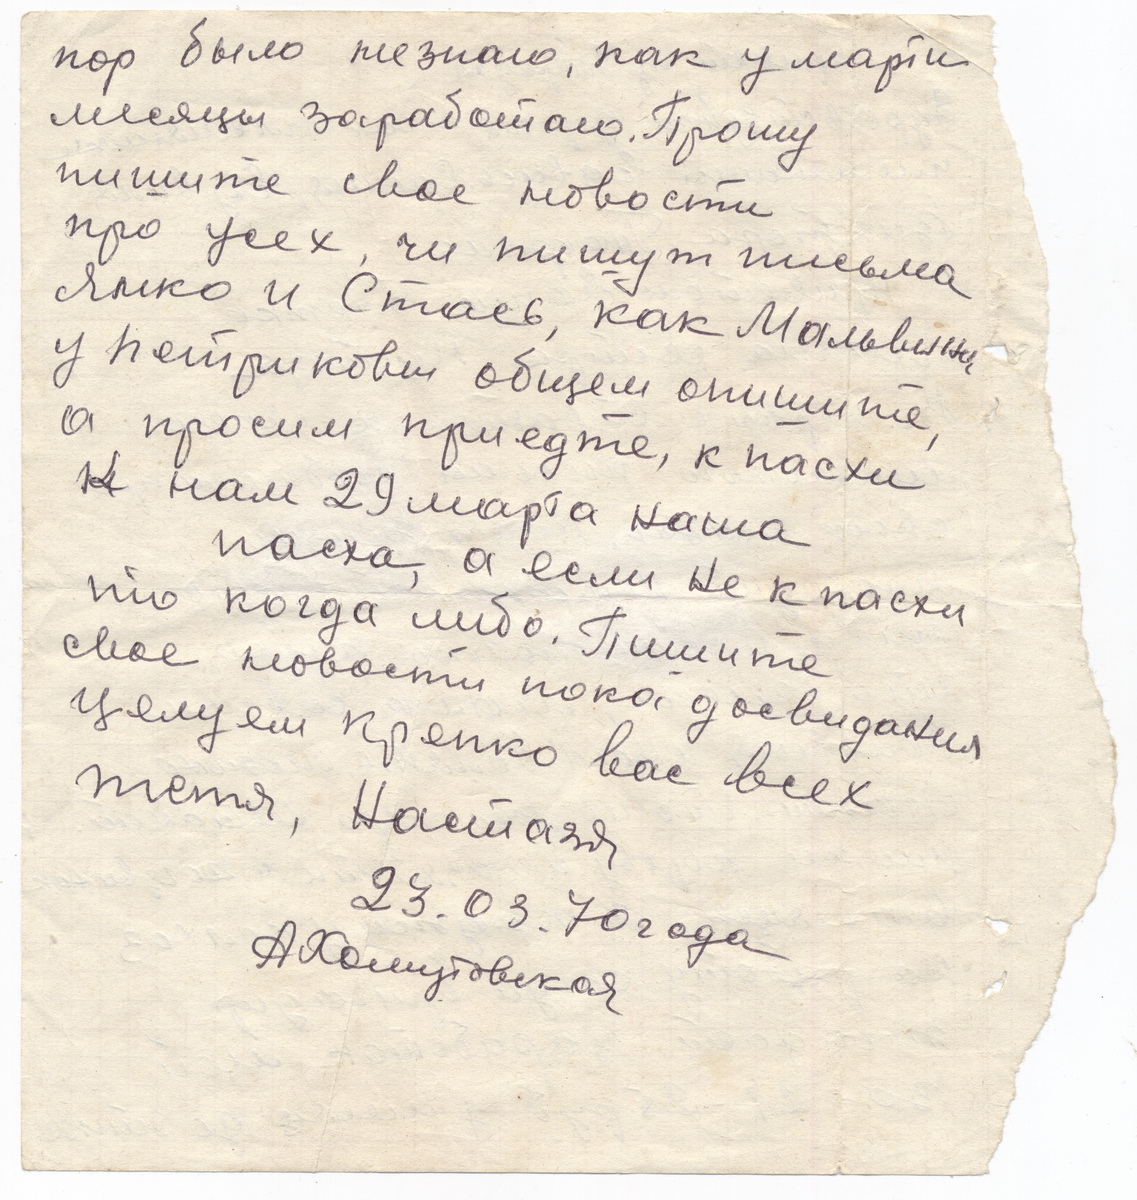 пор было незнаю, как у марти
месяцы заработаю. Прошу
пишите свое новости
про усех, чи пишут письма
Янко и Стась, как Мальвина
у Петриковы общем опишите,
а просим приедте, к пасхи
к нам 29 марта наша
пасха, а если не к пасхи
то когда либо. Пишите
свое новости пока досвидания
целуем крепко вас всех
тетя, Настазя
23.03.70 года
АХомутовская